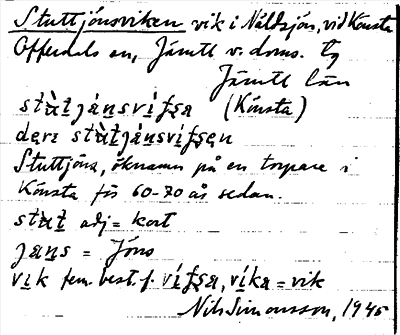 Stuttjónsviken vik i Näldsjön, vid Kónsta
Offerdals sn, Jämtl v. doms. tg
Jämtl län
stùtjånsvífsa (Kónsta)
deri stùtjånsvífsen
Stuttjöns, öknamn på en torpare i
Kónsta för 60-70 år sedan.
stùt adj = kort
jans = Jöns
vik fem. best. f. vífsa, víka = vik
Nils Simonsson, 1945